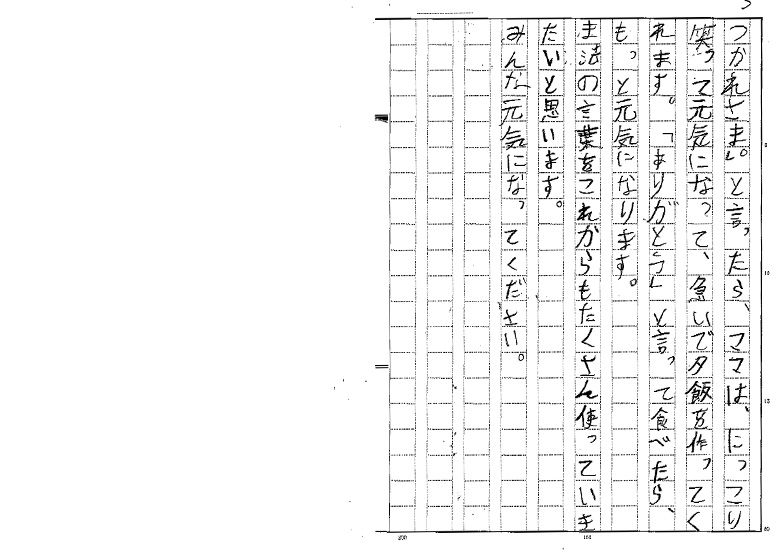 つかれさま。」と言ったら、ママは、にっこり
笑って元気になって、急いで夕飯を作ってく
れます。「ありがとう」と言って食べたら、
もっと元気になります。
ま法の言葉をこれからもたくさん使っていき
たいと思います。
みんな元気になってください。